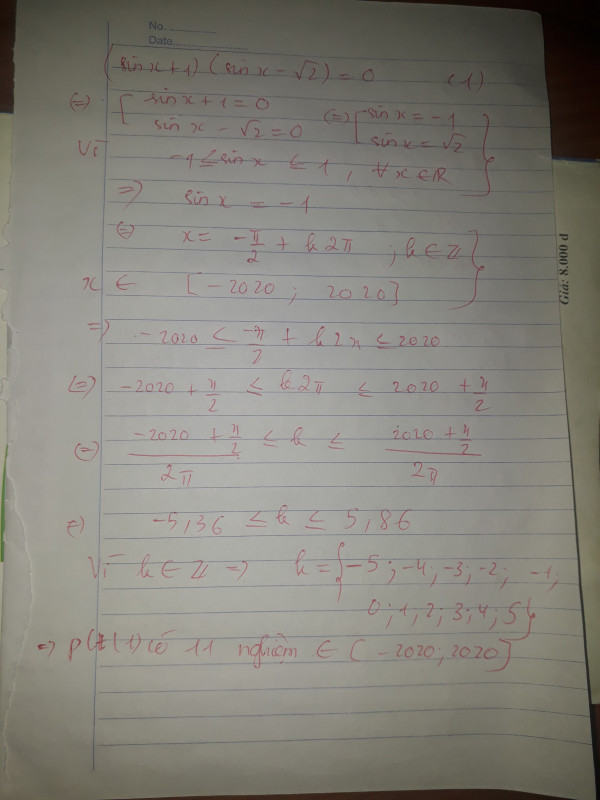 No.
Date
(sin x + 1) (sin x - √2) = 0 (1)
(=) [ sin x + 1 = 0 (=) [ sin x = -1
sin x - √2 = 0 sin x = √2 }
Vì -1 ≤ sin x ≤ 1 , ∀ x ∈ R
=) sin x = -1
(=) x = -π/2 + k2π ; k ∈ Z }
x ∈ [-2020 ; 2020]
=) -2020 ≤ -π/2 + k2π ≤ 2020
(=) -2020 + π/2 ≤ k2π ≤ 2020 + π/2
(=) (-2020 + π/2)/2π ≤ k ≤ (2020 + π/2)/2π
(=) -5,36 ≤ k ≤ 5,86
Vì k ∈ Z => k = {-5 ; -4 ; -3 ; -2 ; -1 ;
0 ; 1 ; 2 ; 3 ; 4 ; 5}
=> pt (1) có 11 nghiệm ∈ [-2020 ; 2020]
Giá: 8.000 đ